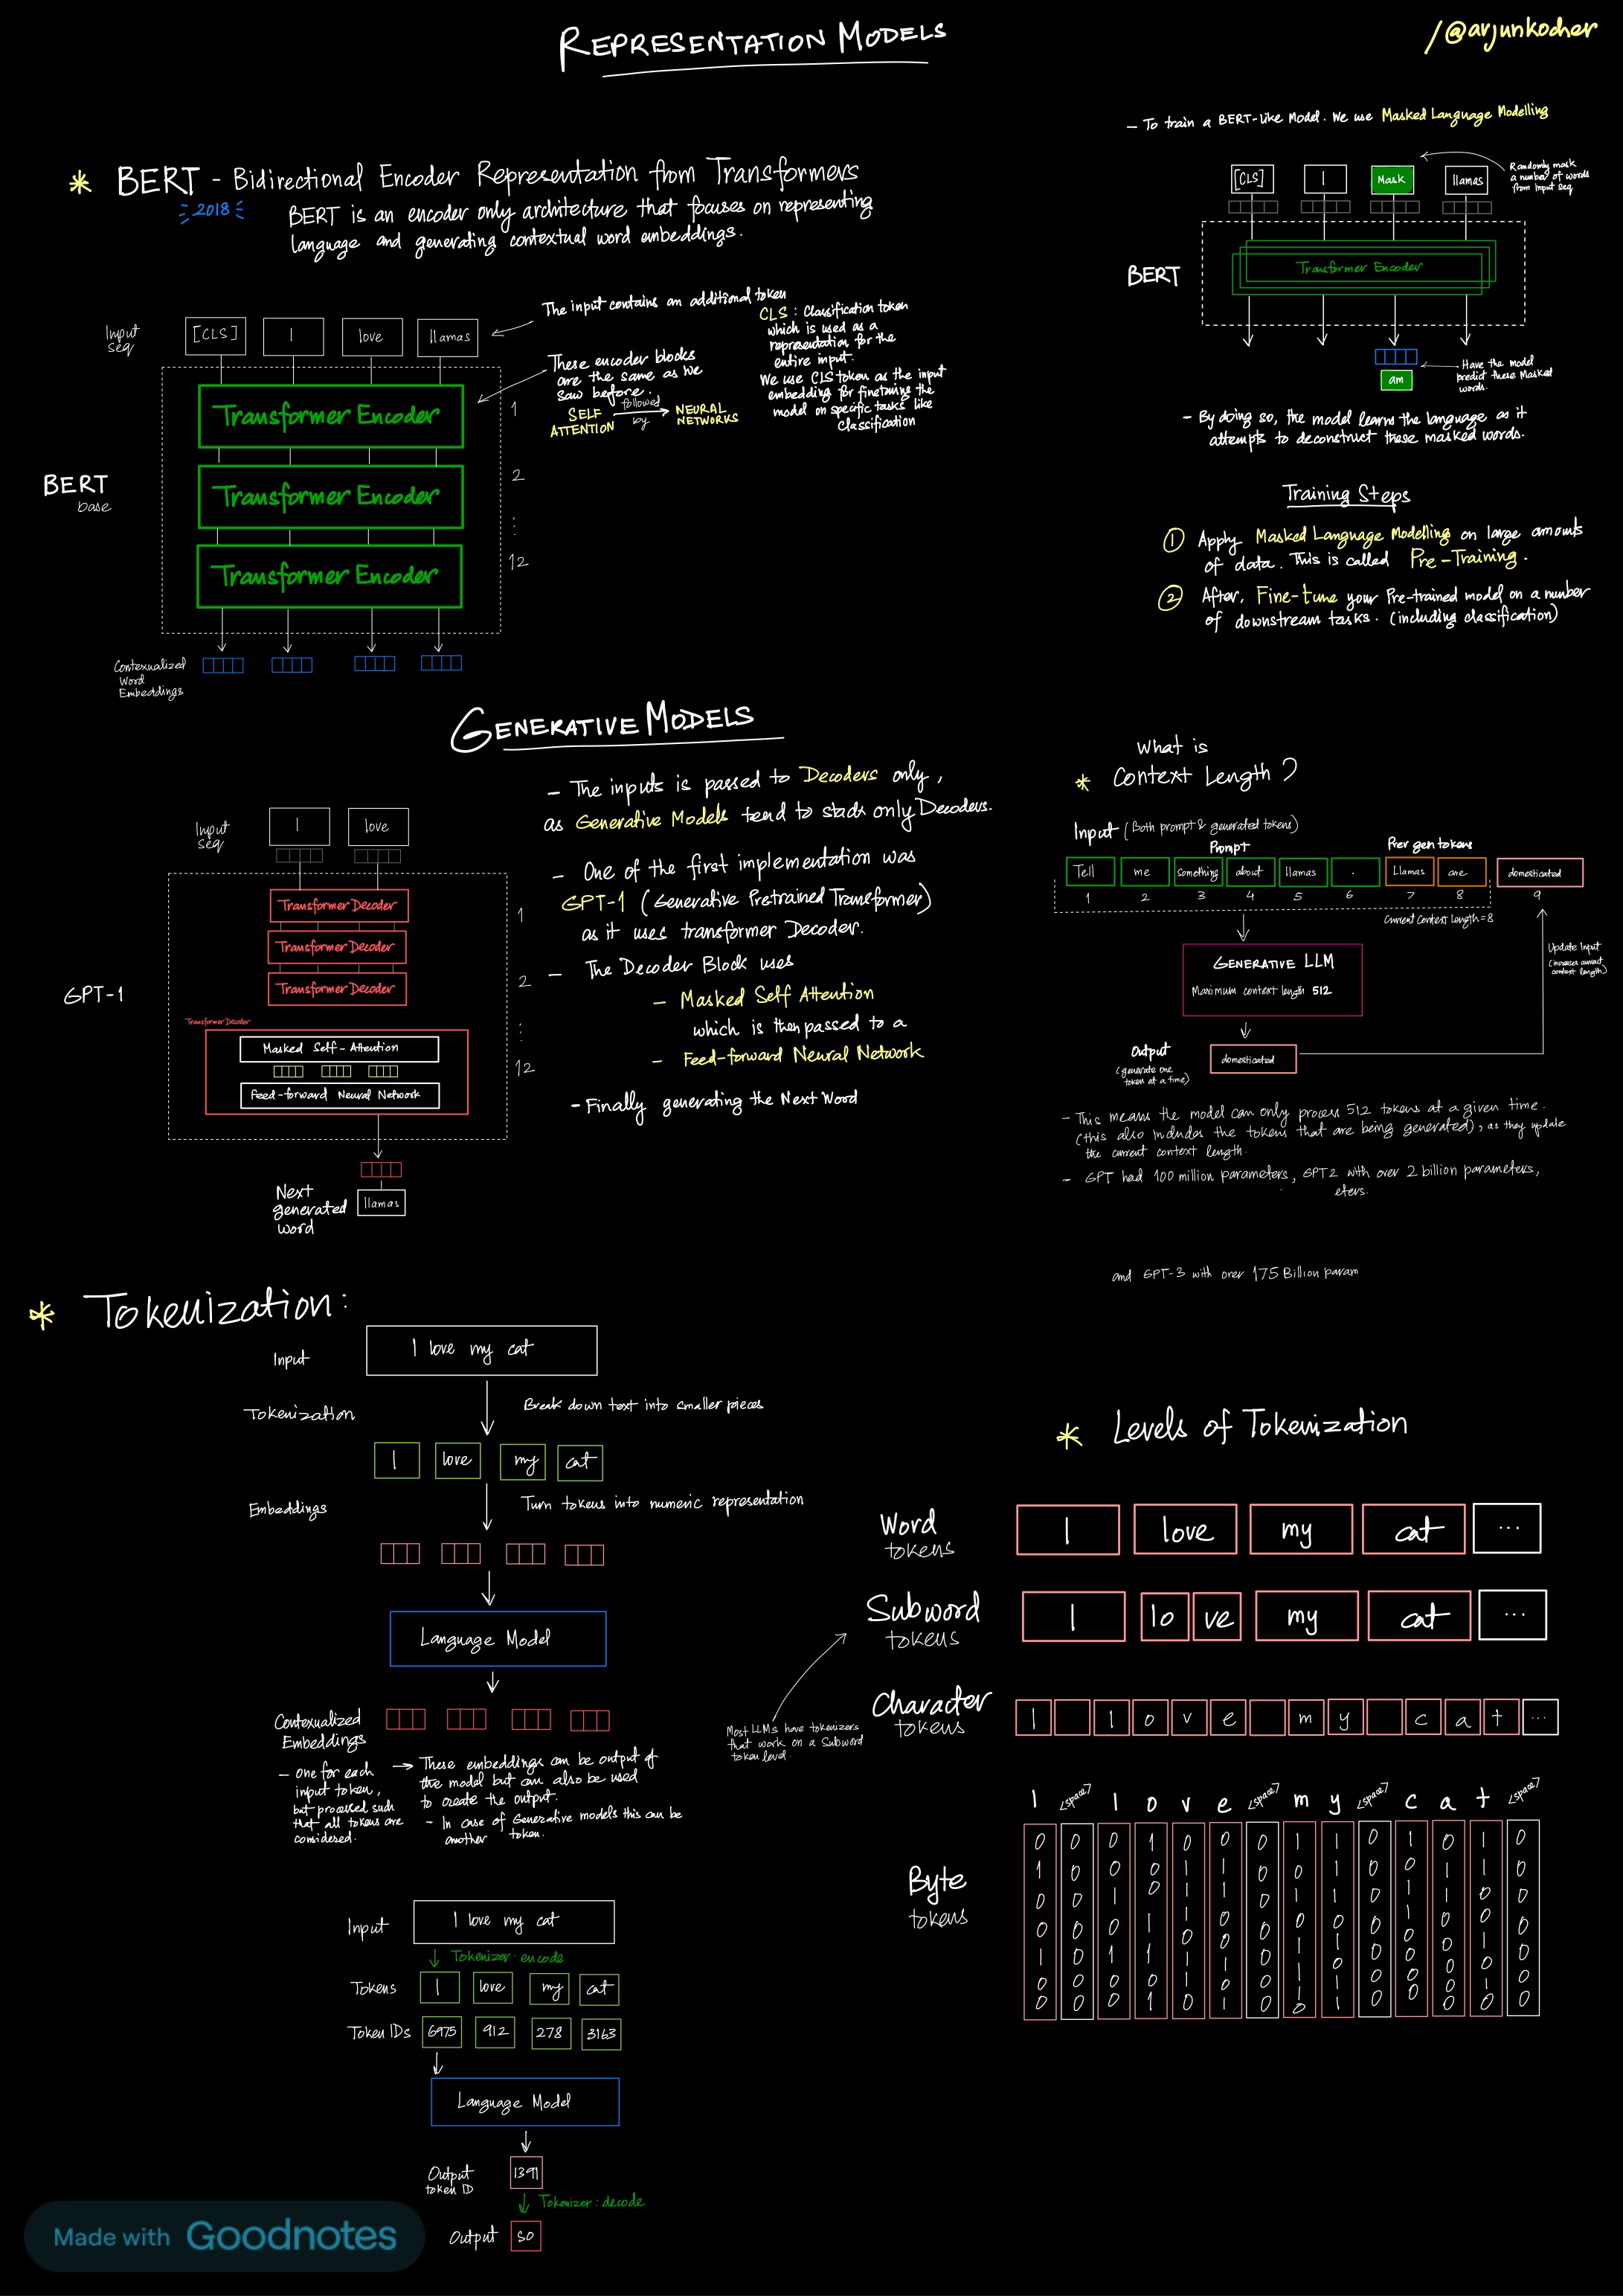 REPRESENTATION MODELS
/@arjunkocher
* BERT - Bidirectional Encoder Representation from Transformers
2018
BERT is an encoder only architecture that focuses on representing
language and generating contextual word embeddings.
Input
seq
[CLS] I love llamas
The input contains an additional token
CLS : Classification token
which is used as a
representation for the
entire input.
We use CLS token as the input
embedding for finetuning the
model on specific tasks like
Classification
These encoder blocks
are the same as we
saw before.
SELF
ATTENTION
followed
by
NEURAL
NETWORKS
BERT
base
Transformer Encoder
1
Transformer Encoder
2
Transformer Encoder
12
Contexualized
Word
Embeddings
- To train a BERT-like Model. We use Masked Language Modelling
[CLS] I Mask llamas
Randomly mask
a number of words
from input seq
BERT
Transformer Encoder
am
Have the model
predict these Masked
words.
- By doing so, the model learns the language as it
attempts to deconstruct these masked words.
Training Steps
1 Apply Masked Language Modelling on large amounts
of data. This is called Pre-Training.
2 After, Fine-tune your Pre-trained model on a number
of downstream tasks. (including classification)
GENERATIVE MODELS
Input
seq
I love
GPT-1
Transformer Decoder
1
Transformer Decoder
Transformer Decoder
2
Transformer Decoder
Masked Self-Attention
Feed-forward Neural Network
12
Next
generated
word
llamas
- The inputs is passed to Decoders only,
as Generative Models tend to stack only Decoders.
- One of the first implementation was
GPT-1 (Generative Pretrained Transformer)
as it uses transformer Decoder.
- The Decoder Block uses
- Masked Self Attention
which is then passed to a
- Feed-forward Neural Network
- Finally generating the Next Word
What is
* Context Length ?
Input (Both prompt & generated tokens)
Prompt
Prev gen tokens
Tell me something about llamas . Llamas are domesticated
1 2 3 4 5 6 7 8 9
Current Context Length = 8
GENERATIVE LLM
Maximum context length 512
Update Input
(increases current
context length)
Output
(generate one
token at a time)
domesticated
- This means the model can only process 512 tokens at a given time.
(this also includes the tokens that are being generated), as they update
the current context length.
- GPT had 100 million parameters, GPT2 with over 2 billion parameters,
eters.
and GPT-3 with over 175 Billion param
* Tokenization:
Input
I love my cat
Tokenization
Break down text into smaller pieces
I love my cat
Embeddings
Turn tokens into numeric representation
Language Model
Contexualized
Embeddings
- One for each
input token,
but processed such
that all tokens are
considered.
→ These embeddings can be output of
the model but can also be used
to create the output.
- In case of Generative models this can be
another token.
Input
I love my cat
Tokenizer : encode
Tokens
I love my cat
Token IDs
6975 912 278 3163
Language Model
Output
token ID
1391
Tokenizer : decode
Output
so
* Levels of Tokenization
Word
tokens
I love my cat ...
Subword
tokens
I lo ve my cat ...
Most LLMs have tokenizers
that work on a Subword
token level.
Character
tokens
I l o v e m y c a t ...
I <space> l o v e <space> m y <space> c a t <space>
Byte
tokens
0 0 0 1 0 0 0 1 1 0 1 0 1 0
1 0 0 0 1 1 0 0 1 0 0 1 1 0
0 0 1 0 1 1 0 1 1 0 1 1 0 0
0 0 0 1 1 0 0 0 0 0 1 0 0 0
1 0 1 1 0 0 0 1 1 0 0 0 1 0
0 0 0 0 1 1 0 1 0 0 0 0 0 0
0 0 0 1 0 0 0 1 1 0 0 0 1 0
Made with Goodnotes